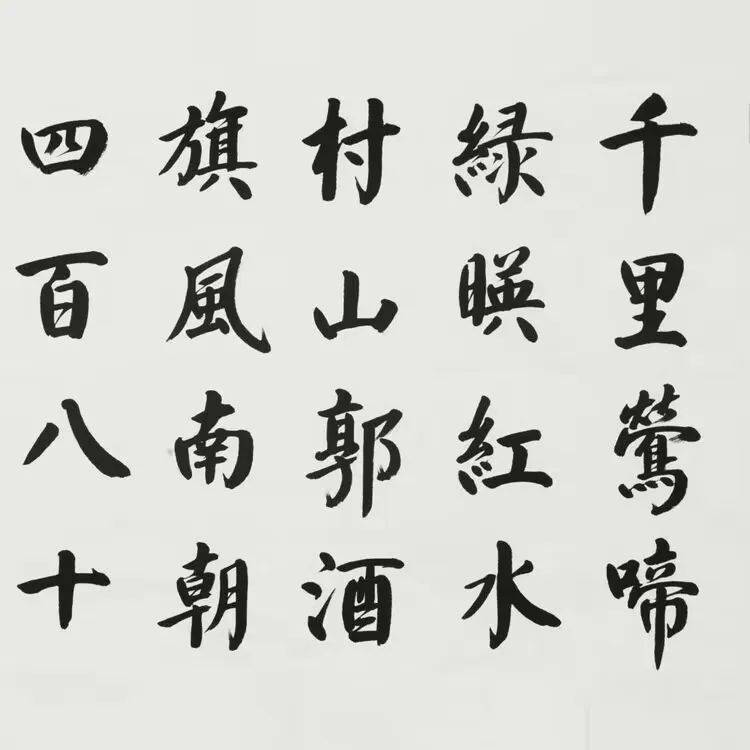 千里鶯啼
綠暎紅水
村山郭酒
旗風南朝
四百八十